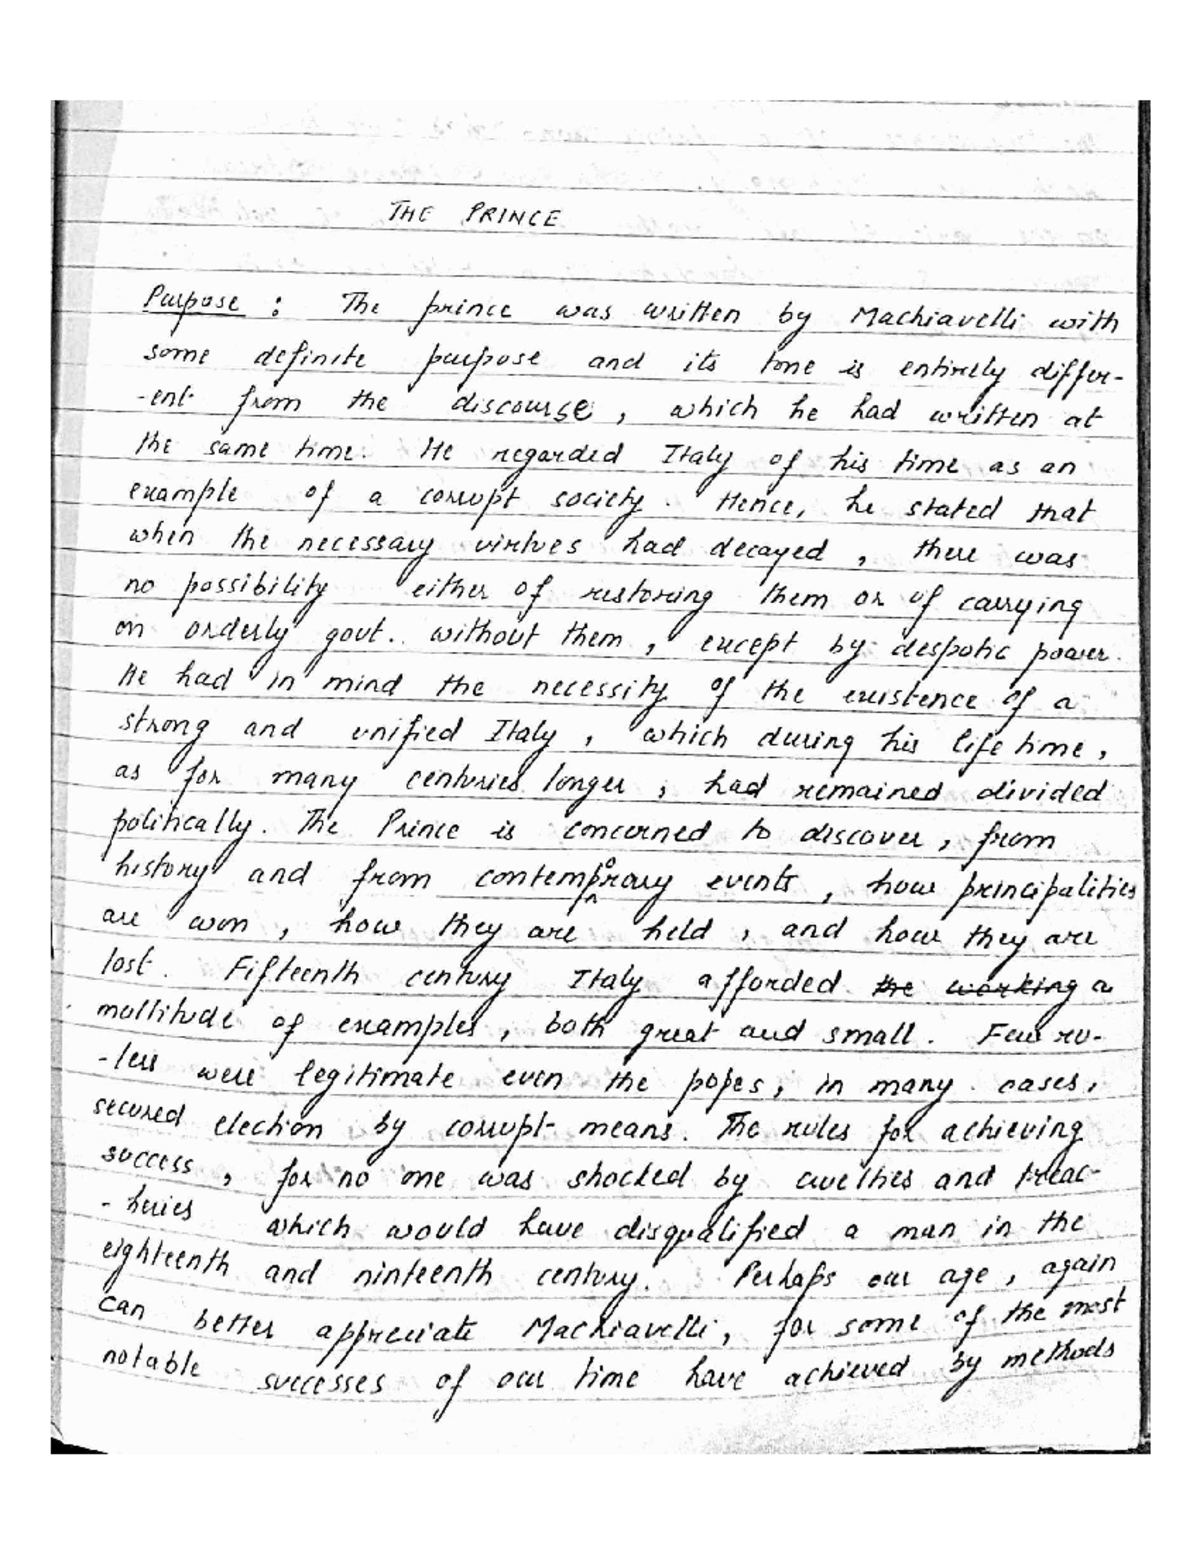 THE PRINCE
Purpose : The prince was written by Machiavelli with
some definite purpose and its tone is entirely differ-
-ent from the discourse, which he had written at
the same time. He regarded Italy of his time as an
example of a corrupt society. Hence, he stated that
when the necessary virtues had decayed, there was
no possibility either of restoring them or of carrying
on orderly govt. without them, except by despotic power.
He had in mind the necessity of the existence of a
strong and unified Italy, which during his life time,
as for many centuries longer, had remained divided
politically. The Prince is concerned to discover, from
history and from contemporary events, how principalities
are won, how they are held, and how they are
lost. Fifteenth century Italy afforded the working a
multitude of examples, both great and small. Few ru-
-lers were legitimate even the popes, in many cases,
secured election by corrupt means. The rules for achieving
success, for no one was shocked by cruelties and treac-
-heries which would have disqualified a man in the
eighteenth and ninteenth century. Perhaps our age, again
can better appreciate Machiavelli, for some of the most
notable successes of our time have achieved by methods